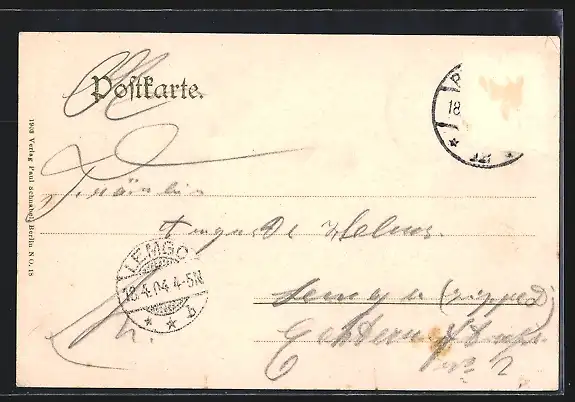 Postkarte.
1903 Verlag Paul Schnabel, Berlin N.O. 18
18
Fräulein
Auguste Helms.
LEMGO
18.4.04.4-5N
* * b
Lemgo (Lippe)
Echternstrasse
No 2